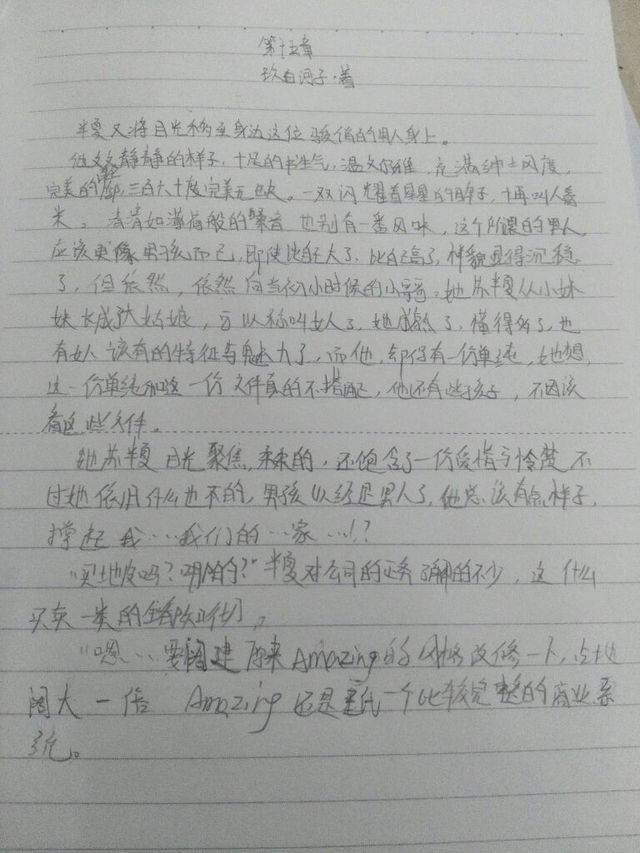 第十五章
玖白河子·著
半夏又将目光移至身边这位骏俏的男人身上。
他文文静静的样子，十足的书生气，温文尔雅，充满绅士风度，
完美的脸，三百六十度完美无色灰。一双闪耀着星星的眸子，十再叫人着
米。清清如薄荷般的嗓音也别有一番风味，这个所谓的男人
应该更像男孩而已，即使他在大了，比自己高了，样貌显得沉稳
了，但依然，依然向当初小时候的小哥哥。她苏半夏从小妹
妹长成大姑娘，可以称叫女人了，她成熟了，懂得多了，也
有女人该有的特征与魅力了，而他，却仍有一份单纯，她想，
这一份单纯和这一份文件真的不搭配，他还有些孩子，不因该
看这些文件。
她苏半夏目光聚焦，未来的，还饱含了一份爱惜与怜楚，不
过她依旧什么也不的，男孩以经是男人了，他总该有点样子，
撑起我…我们的…家…!?
“买地皮吗？明的？”半夏对公司的业务了解的不少，这什么
买卖一类的全都知
“嗯…要阔建原来Amazing的网络改修一下，占地
阔大一倍 Amazing还是一个比较完整的商业系
统。